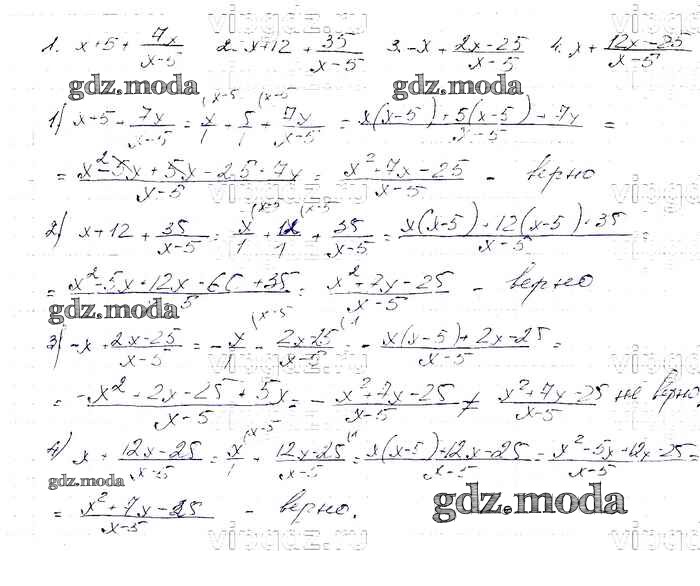 1. x+5+ 7x/(x-5) 2. x+12+ 35/(x-5) 3. -x+ (2x-25)/(x-5) 4. x+ (12x-25)/(x-5)
gdz.moda gdz.moda
1) x+5+ 7x/(x-5) = x/1 (x-5 + 5/1 (x-5 + 7x/(x-5) = (x(x-5)+5(x-5)+7x)/(x-5) =
= (x²-5x+5x-25+7x)/(x-5) = (x²+7x-25)/(x-5) - верно
2) x+12+ 35/(x-5) = x/1 (x-5 + 12/1 (x-5 + 35/(x-5) = (x(x-5)+12(x-5)+35)/(x-5) =
= (x²-5x+12x-60+35)/(x-5) = (x²+7x-25)/(x-5) - верно
gdz.moda
3) -x+ (2x-25)/(x-5) = - x/1 (x-5 (2x-25)/(x-5) (1 = - (x(x-5)+2x-25)/(x-5) =
= (-x²+2x-25+5x)/(x-5) = - (x²+7x-25)/(x-5) ≠ (x²+7x-25)/(x-5) не верно
4) x + (12x-25)/(x-5) = x/1 (x-5 + (12x-25)/(x-5) (1 = (x(x-5)+12x-25)/(x-5) = (x²-5x+12x-25)/(x-5) =
gdz.moda
= (x²+7x-25)/(x-5) - верно.
gdz.moda
vipgdz.ru